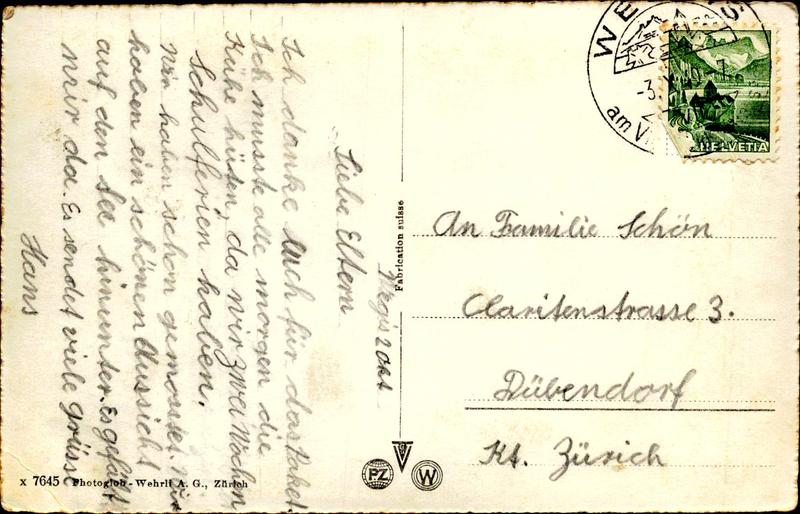 Vegis 2 Okt.
Liebe Eltern
Ich danke Euch für das Paket.
Ich musste alle morgen die
Kühe hüten, da wir zwei Wochen
Schulferien haben.
Wir haben schon gemostet. Wir
haben ein schönen Aussicht
auf den See hinunter. Es gefällt
mir da. Es sendet viele Grüsse
Hans
Fabrication suisse
An Familie Schön
Claritenstrasse 3.
Dübendorf
Kt. Zürich
-3.X.
am
HELVETIA
PZ
W
x 7645 Photoglob-Wehrli A. G., Zürich